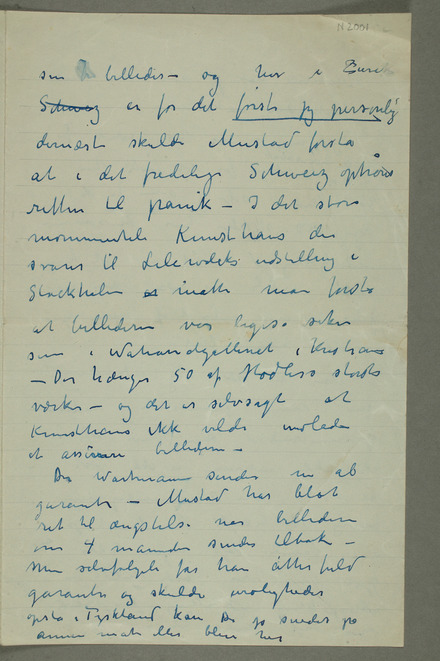 N 2001
sin billeder – og her i Zürich
Schweiz er for det første jeg personlig
dernæst skulde Mustad forstå
at i det fredelige Schweiz ophører
retten til panik – I det store
monumentale Kunsthaus der
svarer til Liljevalchs udstilling i
Stockholm må man forstå
at billederne var ligeså sikre
som i Nationalgalleriet i Kristiania
– Der hænger 50 af Hodlers største
værker – og det er selvsagt at
Kunsthaus ikke vilde undlade
at assurere billederne –
Dr Wartmann sender nu al
garanti – Mustad har blot
ret til ængstelse når billederne
om 4 måneder sendes tilbake –
Men selvfølgelig får han atter fuld
garanti og skulde uroligheder
opstå i Tyskland kan de jo sendes på
annen måte eller blive her